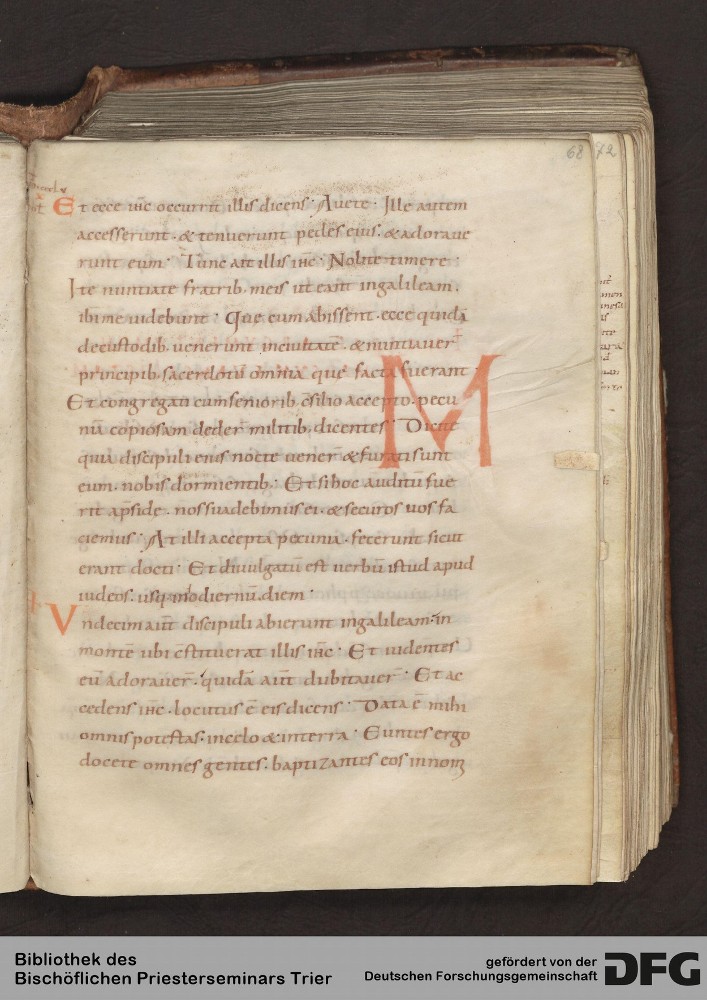 68 72
Et ecce ihc occurrit illis dicens · Avete · Ille autem
accesserunt · & tenuerunt pedes eius · & adorave
runt eum · Tunc ait illis ihc · Nolite timere ·
Ite nuntiate fratrib · meis ut eant ingalileam ·
ibi me videbunt · Que cum abissent · ecce quidā
decustodib · venerunt incivitatē · & nuntiaver̄
principib · sacerdotū omnia que facta fuerant ·
Et congregati cum seniorib c̄silio accepto · pecu
niā copiosam deder̄ militib · dicentes · Dicite
quia discipuli eius nocte vener̄ & furati sunt
eum · nobis dormientib · Et si hoc auditū fue
rit ap̄side · nos suadebimus ei · & securos vos fa
ciemus · At illi accepta pecunia · fecerunt sicut
erant docti · Et divulgatū est verbū istud apud
iudeos · usq; inhodiernū diem ·
Undecim aut̄ discipuli abierunt ingalileam · in
montē ubi c̄stituerat illis ihc · Et videntes
eū adoraver̄ · quidā aut̄ dubitaver̄ · Et ac
cedens ihc · locutus ē eis dicens · Data ē mihi
omnis potestas · incelo & interra · Euntes ergo
docete omnes gentes · baptizantes eos innom̄
M
Bibliothek des
Bischöflichen Priesterseminars Trier
gefördert von der
Deutschen Forschungsgemeinschaft
DFG